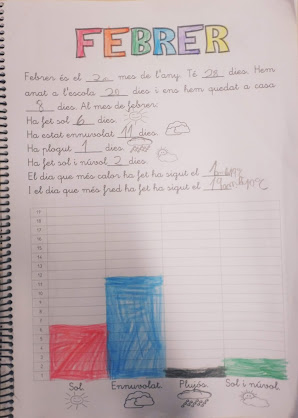 FEBRER
Febrer és el 2n mes de l'any. Té 28 dies. Hem
anat a l'escola 20 dies i ens hem quedat a casa
8 dies. Al mes de febrer:
Ha fet sol 6 dies.
Ha estat ennuvolat 11 dies.
Ha plogut 1 dies.
Ha fet sol i núvol 2 dies.
El dia que més calor ha fet ha sigut el
I el dia que més fred ha fet ha sigut el
Sol Ennuvolat Plujós Sol i núvol